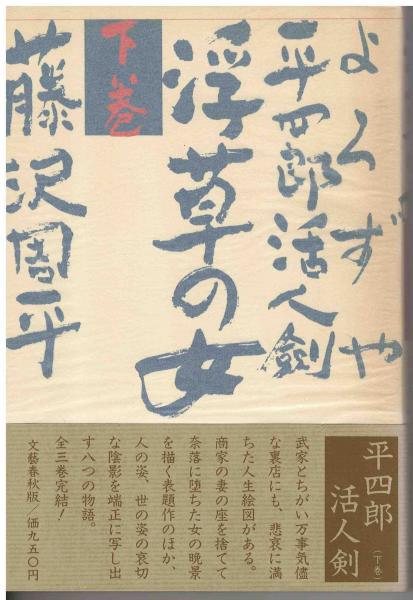 よろずや
平四郎活人劍
浮草の女
下巻
藤沢周平
平四郎
活人剣
（下巻）
武家とちがい万事気儘
な裏店にも、悲哀に満
ちた人生絵図がある。
商家の妻の座を捨てて
奈落に堕ちた女の晩景
を描く表題作のほか、
人の姿、世の姿の哀切
な陰影を端正に写し出
す八つの物語。
全三巻完結！
文藝春秋版／価九五〇円